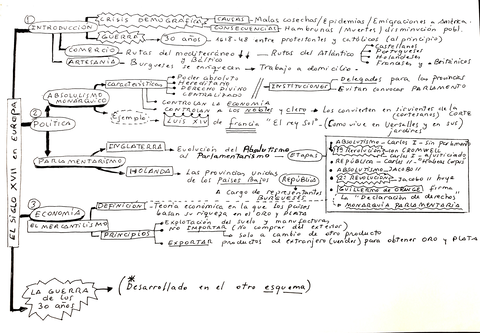 EL SIGLO XVII EN EUROPA
①
INTRODUCCIÓN
CRISIS DEMOGRÁFICA
CAUSAS - Malas cosechas/Epidemias/Emigraciones a América.
CONSECUENCIAS - Hambrunas/Muertes/disminución pobl.
GUERRA 30 años 1618-48 entre protestantes y católicos (al principio)
COMERCIO - Rutas del mediterráneo y Báltico
Rutas del Atlántico
Castellanos
Portugueses
Holandeses
Franceses y Británicos
ARTESANÍA - Burgueses se enriquecen → Trabajo a domicilio.
②
POLÍTICA
ABSOLUTISMO MONÁRQUICO
Características
Poder absoluto
Hereditario
DERECHO DIVINO
CENTRALIZADO
INSTITUCIONES
Delegados para las provincias
Evitan convocar PARLAMENTO
CONTROLAN LA ECONOMÍA
CONTROLAN A LOS NOBLES y clero → Los convierten en sirvientes de la CORTE
(cortesanos)
Ejemplo
LUIS XIV de francia "El rey Sol".
(Como vive en Versalles y en sus jardines)
PARLAMENTARISMO
INGLATERRA - Evolución del Absolutismo al Parlamentarismo → ETAPAS
ABSOLUTISMO - Carlos I - Sin parlamento
1ª Revolución con CROMWELL
Carlos I - ajusticiado
REPÚBLICA - Carlos II
ABSOLUTISMO - JACOBO II
2ª REVOLUCIÓN - Jacobo II huye
GUILLERMO DE ORANGE firma
La "Declaración de derechos"
MONARQUÍA PARLAMENTARIA
HOLANDA - Las Provincias unidas de los Países Bajos
República
A cargo de representantes BURGUESES
③
ECONOMÍA
EL MERCANTILISMO
DEFINICIÓN - Teoría económica en la que los países basan su riqueza en el ORO y PLATA
PRINCIPIOS
Explotación del suelo y manufacturas
NO IMPORTAR (No comprar del exterior)
solo a cambio de otro producto
EXPORTAR productos al extranjero (vender) para obtener ORO y PLATA
LA GUERRA de los 30 años
(* Desarrollado en el otro esquema)